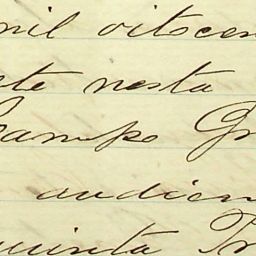 mil oitocen
te nesta
Campo Gr
audien
quinta Tr